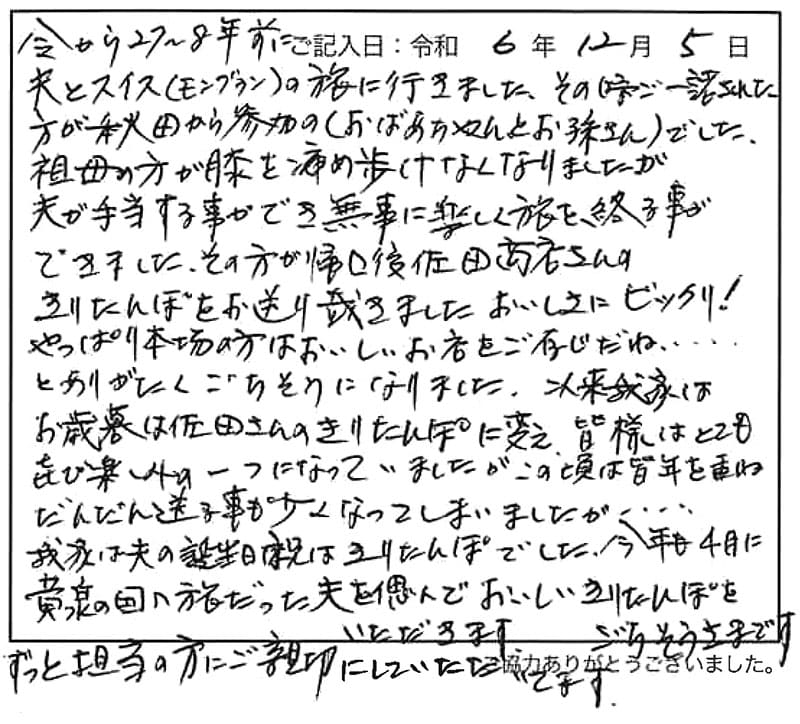 今から27〜8年前に ご記入日：令和 6 年 12 月 5 日
夫とスイス（モンブラン）の旅に行きました、その時ご一諸された
方が秋田から参加の（おばあちゃんとお孫さん）でした、
祖母の方が膝を痛め歩けなくなりましたが
夫が手当する事ができ無事に楽しく旅を終る事が
できました、その方が帰口後佐田商店さんの
きりたんぽをお送り戴きました おいしさに ビックリ！
やっぱり本場の方はおいしいお店をご存じだね、・・・・
とありがたくごちそうになりました、以来我家は
お歳暮は佐田さんのきりたんぽに変え、皆様はとても
喜び楽しみの一つになっていましたがこの頃は皆年を重ね
だんだん送る事も少くなってしまいましたが・・・・
我家は夫の誕生日祝はきりたんぽでした、今年も4月に
黄泉の国へ旅だった夫を偲んでおいしいきりたんぽを
いただきます ごちそうさまです
ずっと担当の方にご親切にしていただいてます.
ご協力ありがとうございました。